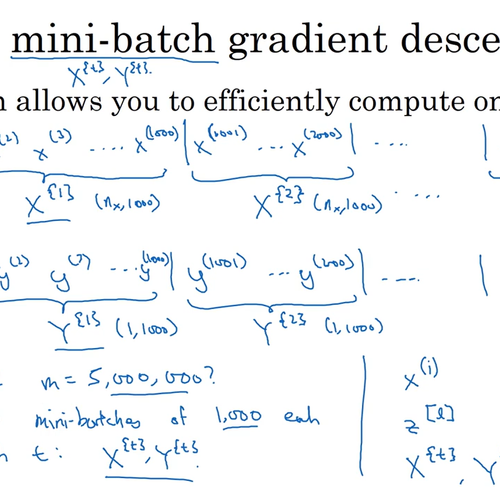 mini-batch gradient desce
X^{t}, Y^{t}.
n allows you to efficiently compute on
(2) x^(3) .... x^(1000) | x^(1001) ... x^(2000) | ... |
X^{1} (n_x, 1000) X^{2} (n_x, 1000) ...
y^(2) y^(3) ... y^(1000) | y^(1001) ... y^(2000) | .... |
Y^{1} (1, 1000) Y^{2} (1, 1000)
m = 5,000,000? x^(i)
mini-batches of 1,000 each z^[l]
t: X^{t}, Y^{t}. X^{t}, Y